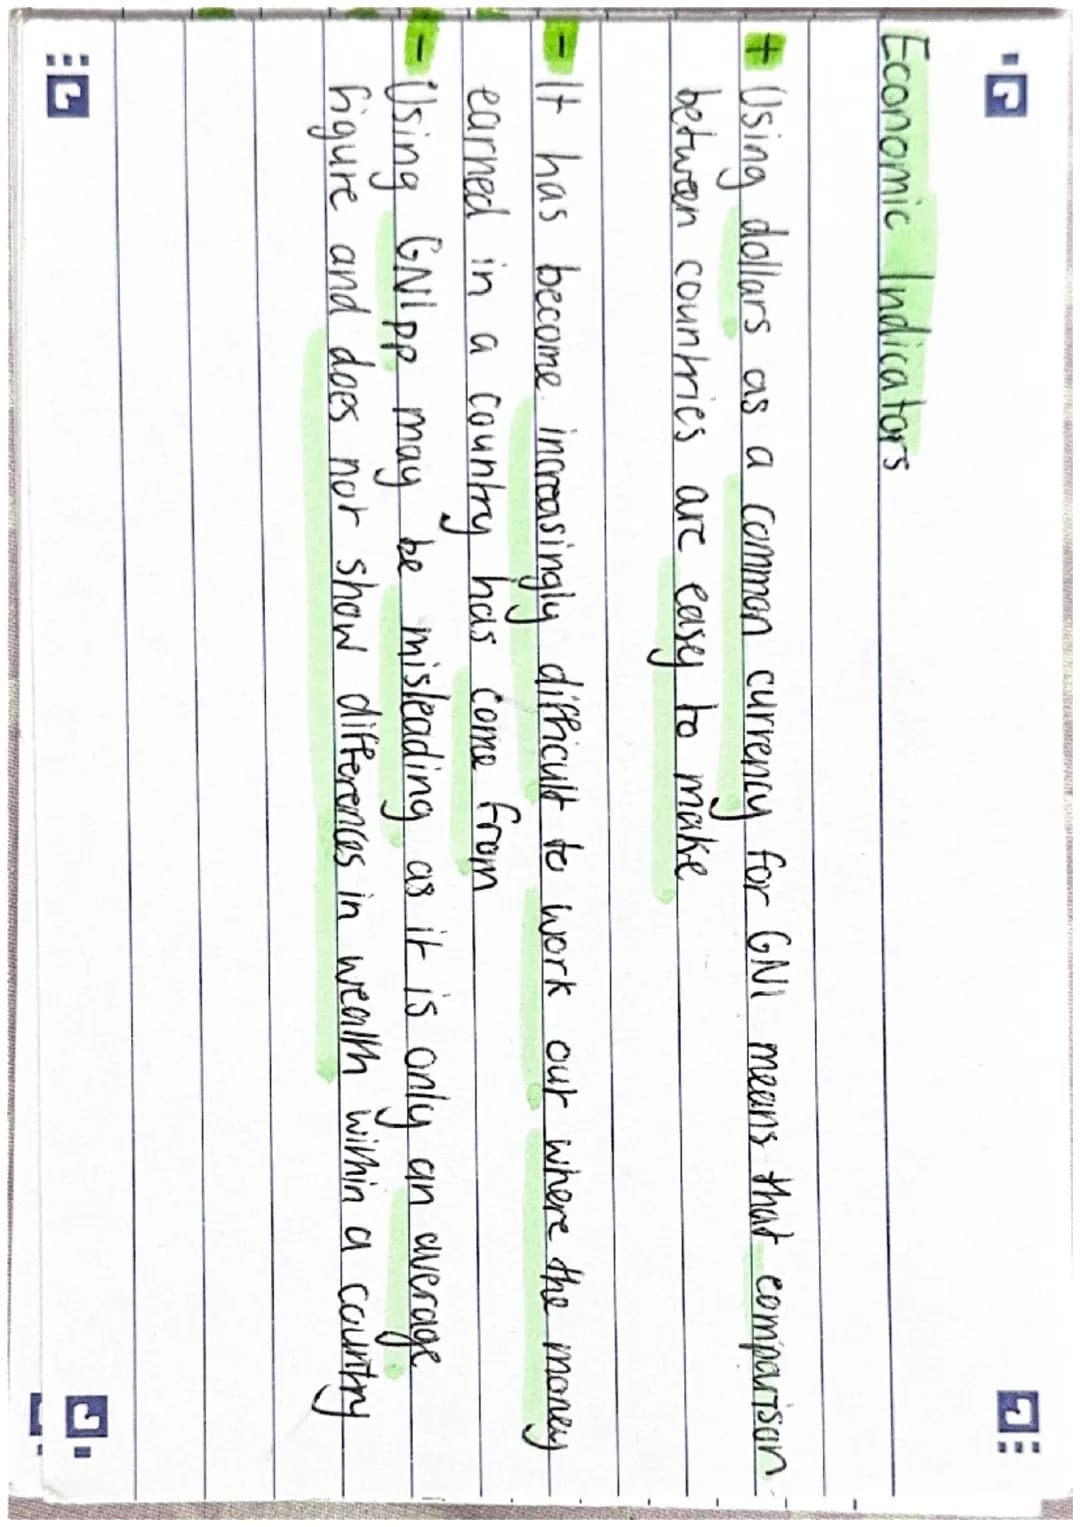 Economic Indicators
+ Using dollars as a common currency for GNI means that comparison
between countries are easy to make
- It has become increasingly difficult to work out where the money
earned in a country has come from
- Using GNIpp may be misleading as it is only an average
figure and does not show differences in wealth within a country